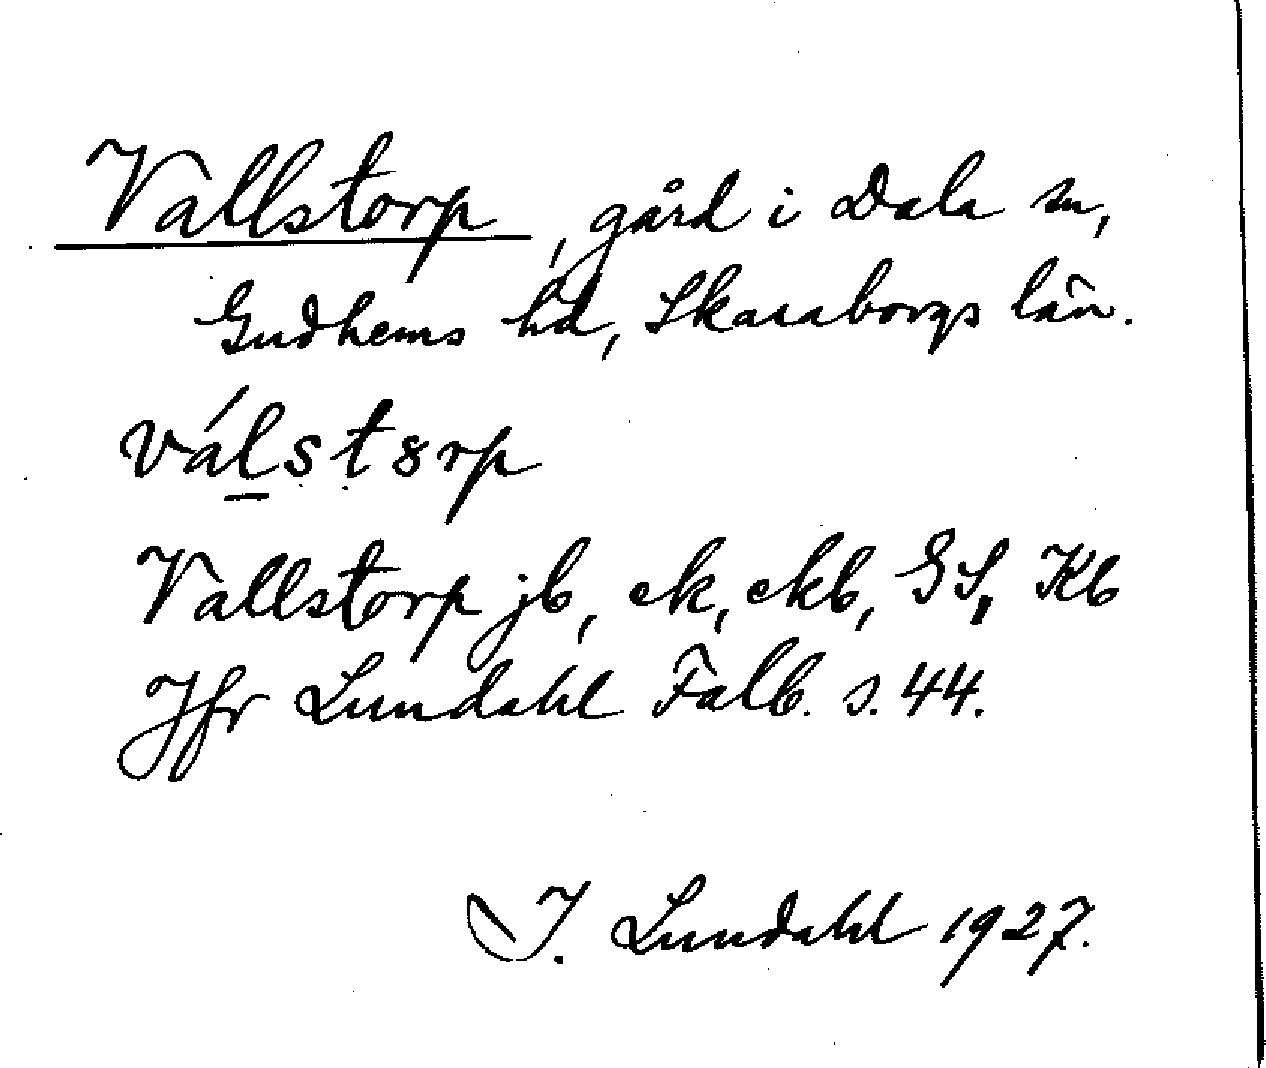 Vallstorp, gård i Dala sn,
Gudhems hd, Skaraborgs län.
válstȣrp
Vallstorp jb, ek, ekb, GS, Kb
Jfr Lundahl Falb. s. 44.
I. Lundahl 1927.